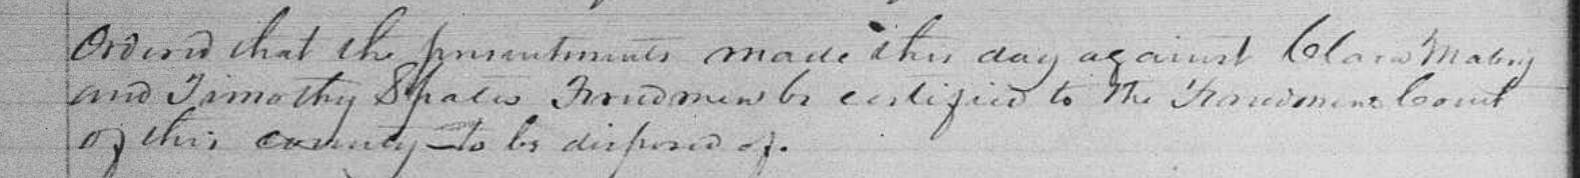 Ordered that the presentments made this day against Clara Mabry
and Timothy Spates Freedmen be certified to the Freedmens Court
of this county to be disposed of.